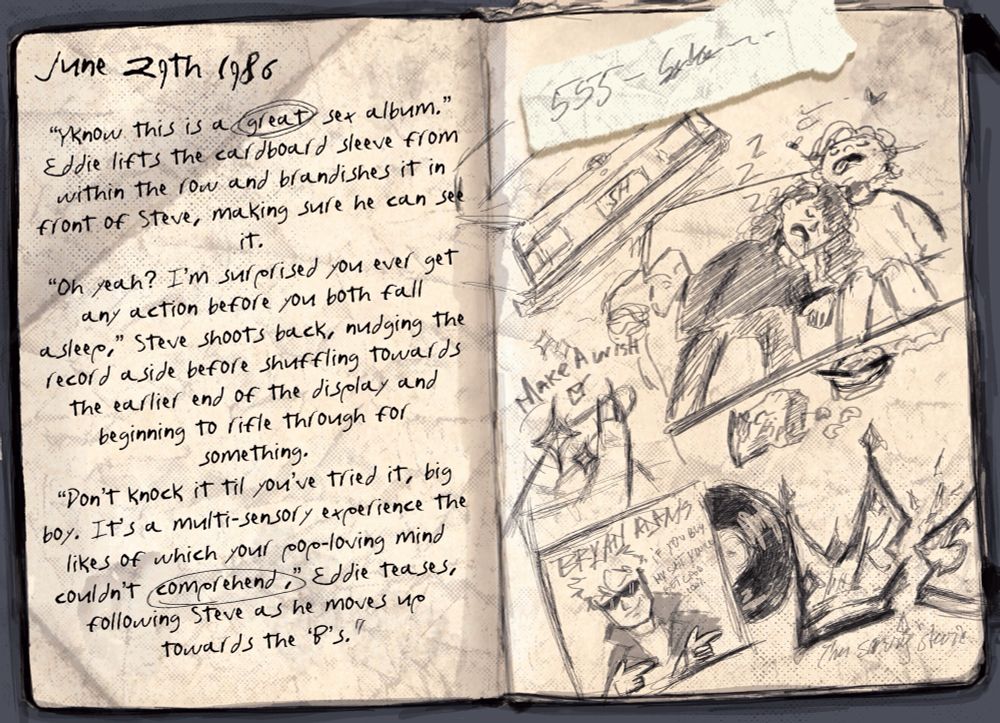 June 29th 1986
"Y'know this is a great sex album."
Eddie lifts the cardboard sleeve from
within the row and brandishes it in
front of Steve, making sure he can see
it.
"Oh yeah? I'm surprised you ever get
any action before you both fall
asleep," Steve shoots back, nudging the
record aside before shuffling towards
the earlier end of the display and
beginning to rifle through for
something.
"Don't knock it til you've tried it, big
boy. It's a multi-sensory experience the
likes of which your pop-loving mind
couldn't comprehend," Eddie teases,
following Steve as he moves up
towards the 'B's."
555-
SH
z
z
z
Make A Wish
BRYAN ADAMS
IF YOU BUY